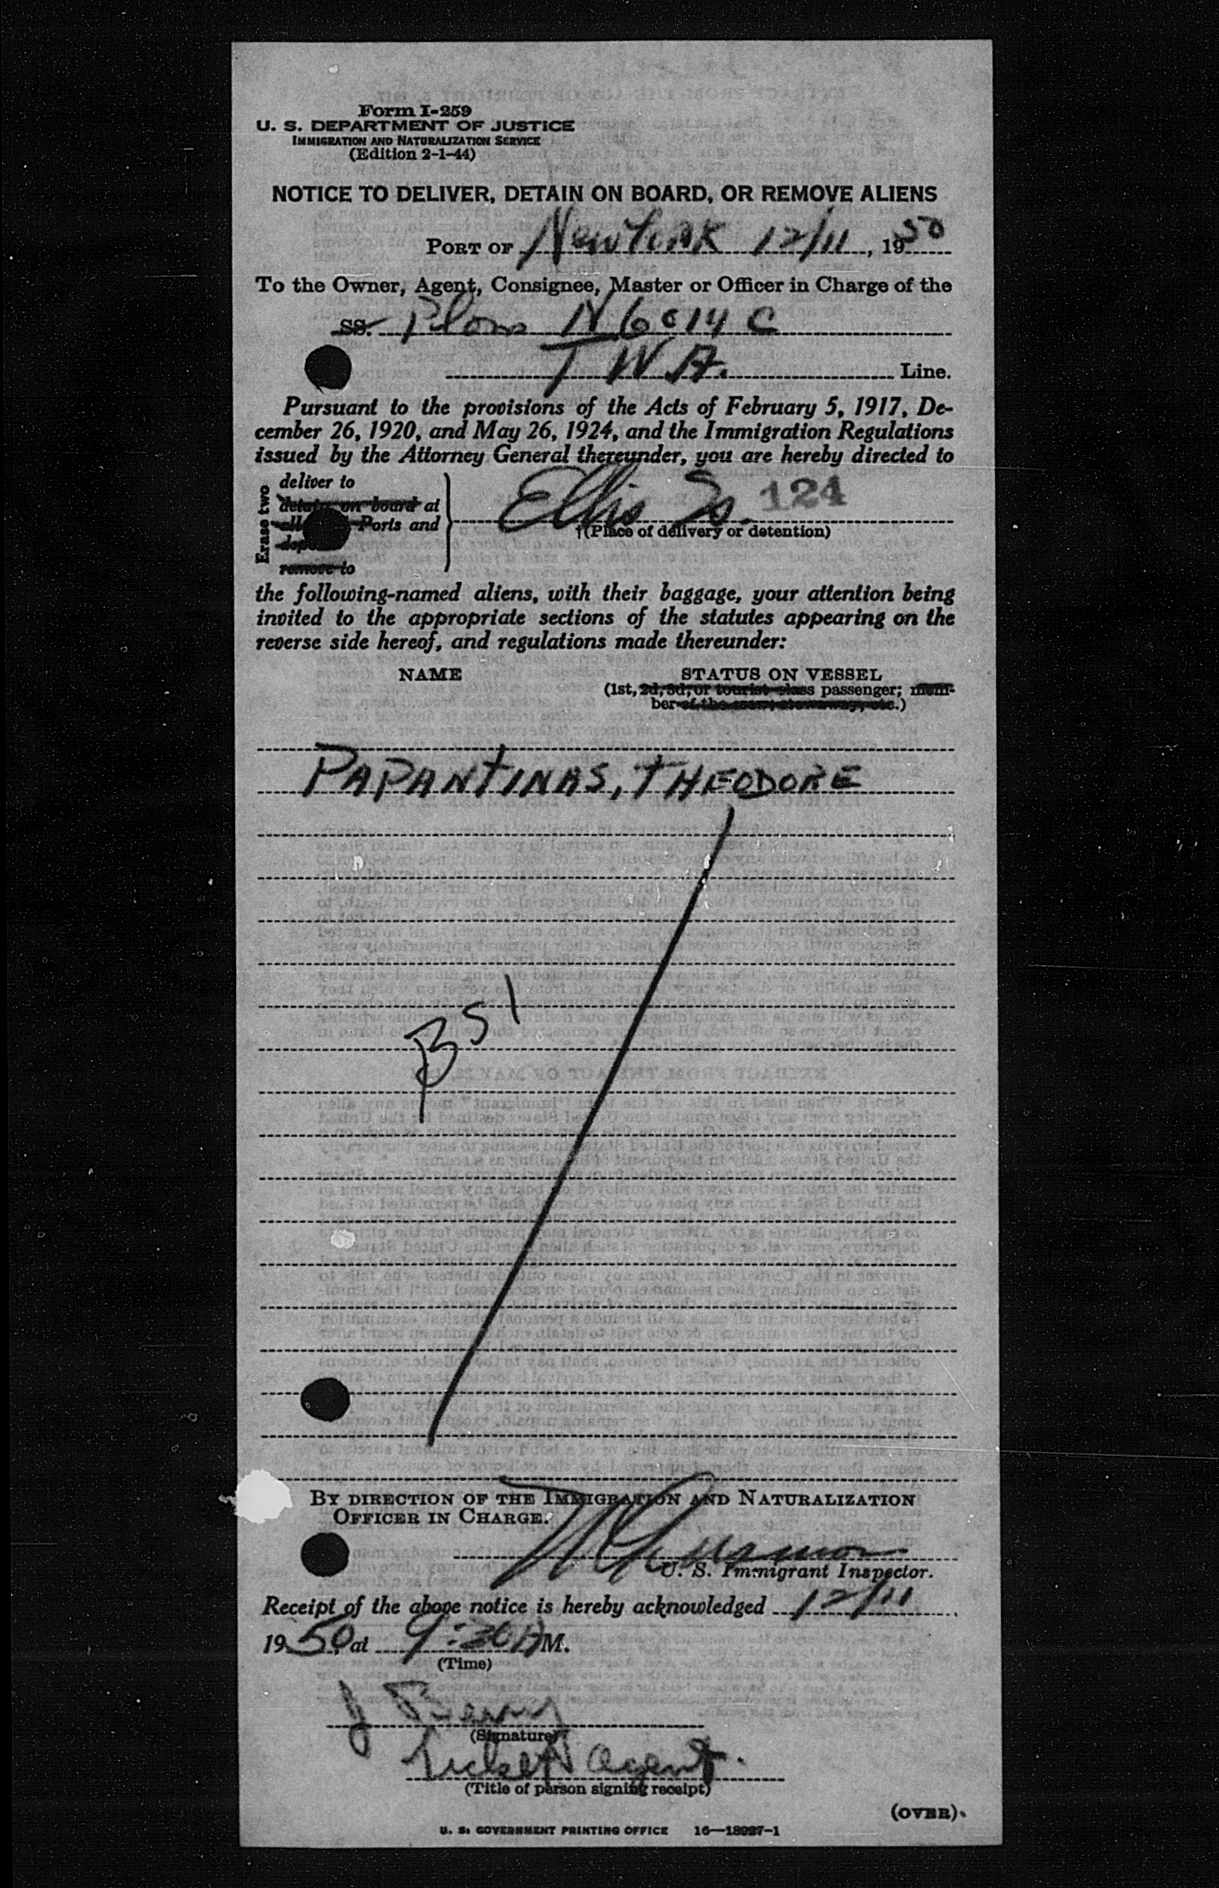 Form I-259
U. S. DEPARTMENT OF JUSTICE
IMMIGRATION AND NATURALIZATION SERVICE
(Edition 2-1-44)
NOTICE TO DELIVER, DETAIN ON BOARD, OR REMOVE ALIENS
PORT OF New York 12/11, 1950
To the Owner, Agent, Consignee, Master or Officer in Charge of the
SS. Plane N 6014 C
T W A. Line.
Pursuant to the provisions of the Acts of February 5, 1917, De-
cember 26, 1920, and May 26, 1924, and the Immigration Regulations
issued by the Attorney General thereunder, you are hereby directed to
Erase two
deliver to
detain on board at
Ports and
remove to
Ellis Is. 124
†(Place of delivery or detention)
the following-named aliens, with their baggage, your attention being
invited to the appropriate sections of the statutes appearing on the
reverse side hereof, and regulations made thereunder:
NAME STATUS ON VESSEL
(1st, 2d, 3d, or tourist class passenger; mem-
ber of the crew, stowaway, etc.)
PAPANTINAS, THEODORE
BSI
BY DIRECTION OF THE IMMIGRATION AND NATURALIZATION
OFFICER IN CHARGE.
U. S. Immigrant Inspector.
Receipt of the above notice is hereby acknowledged 12/11
1950, at 9:30 A M.
(Time)
J
(Signature)
Ticket Agent.
(Title of person signing receipt)
(OVER)
U. S. GOVERNMENT PRINTING OFFICE 16—18927-1